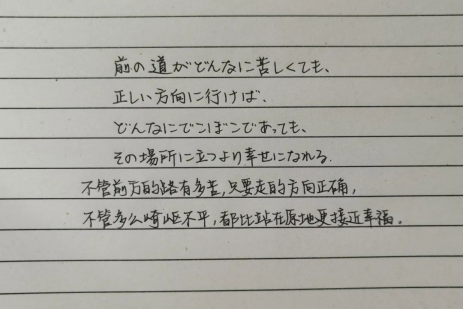 前の道がどんなに苦しくても、
正しい方向に行けば、
どんなにでこぼこであっても、
その場所に立つより幸せになれる.
不管前方的路有多苦,只要走的方向正确,
不管多么崎岖不平,都比站在原地更接近幸福。